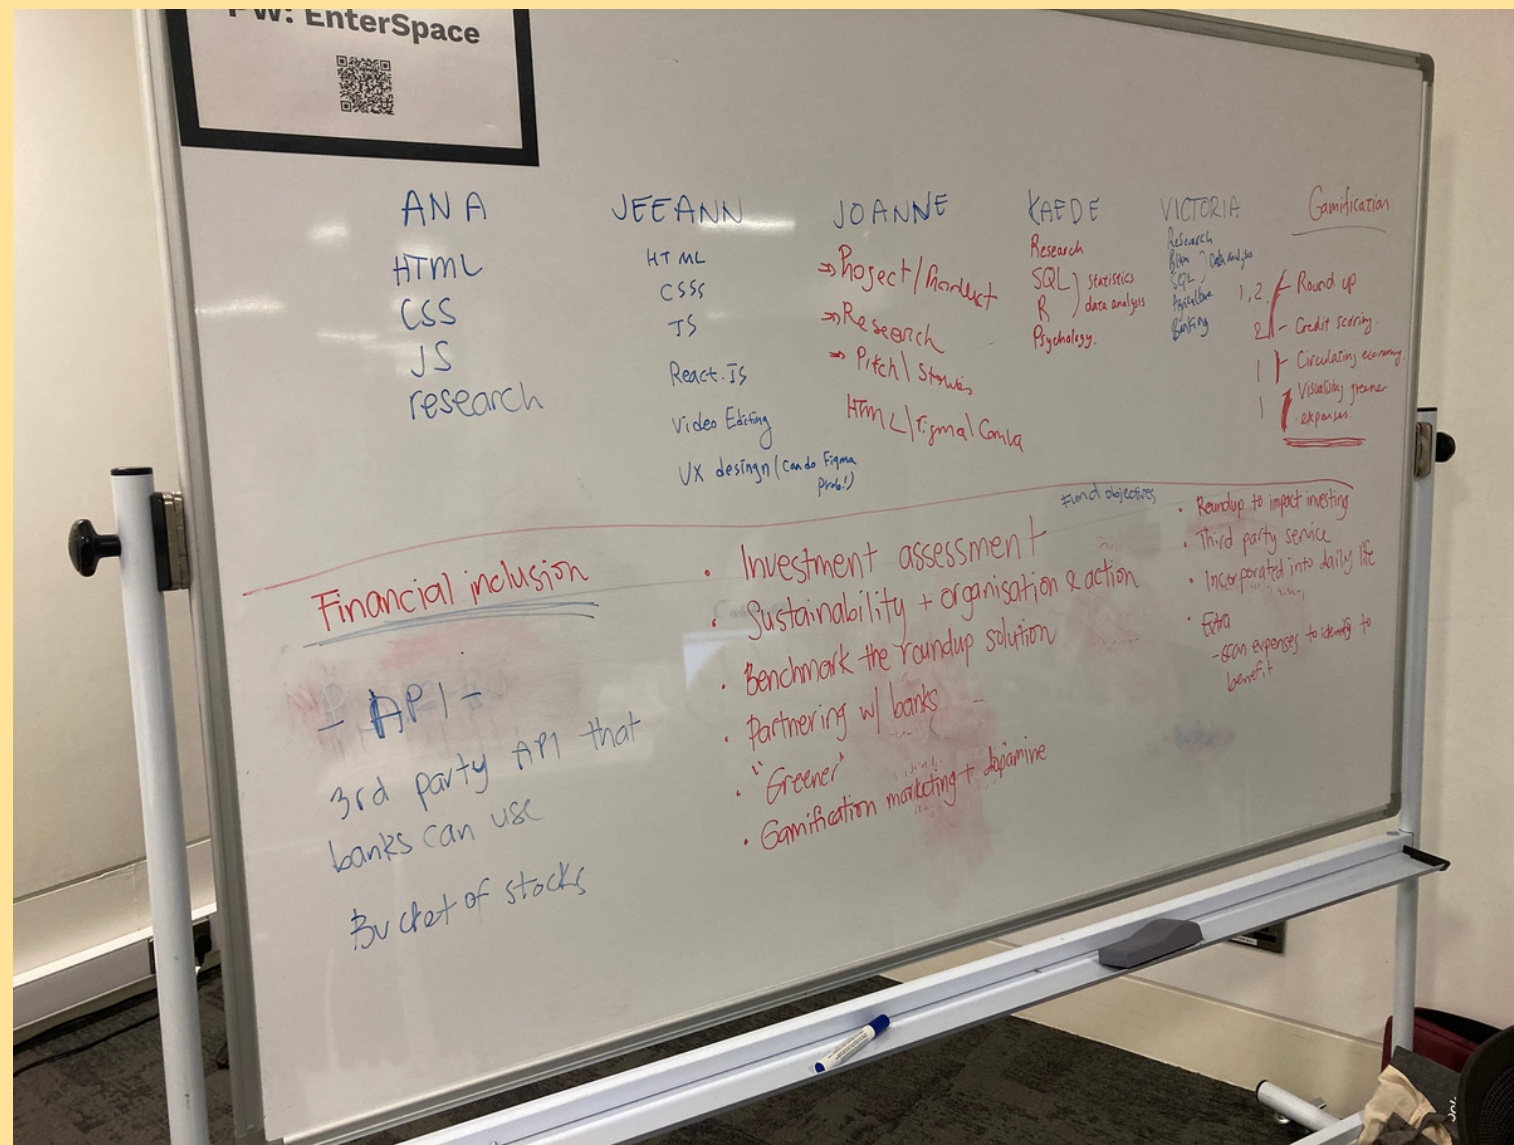 PW: EnterSpace
ANA
HTML
CSS
JS
research
JEEANN
HTML
CSSS
JS
React.JS
Video Editing
UX desingn (can do Figma
Prob!)
JOANNE
⇒ Project / Product
⇒ Research
⇒ Pitch \ Stories
HTML \ Figma \ Canva
KAEDE
Research
SQL ) statistics
R ) data analysis
Psychology.
VICTORIA
Research
SQL
Data analysis
Agriculture
Banking
Gamification
1, 2 - Round up
2 - Credit scoring.
1 - Circulating economy.
1 Visualising greener
expenses.
Financial inclusion
- API -
3rd party API that
banks can use
Bucket of stocks
Fund objectives
• Investment assessment
• Sustainability + organisation & action
• Benchmark the roundup solution
• Partnering w/ banks
• "Greener"
• Gamification marketing + dopamine
• Roundup to impact investing
• Third party service
• Incorporated into daily life
• Extra
- scan expenses to identify to
benefit